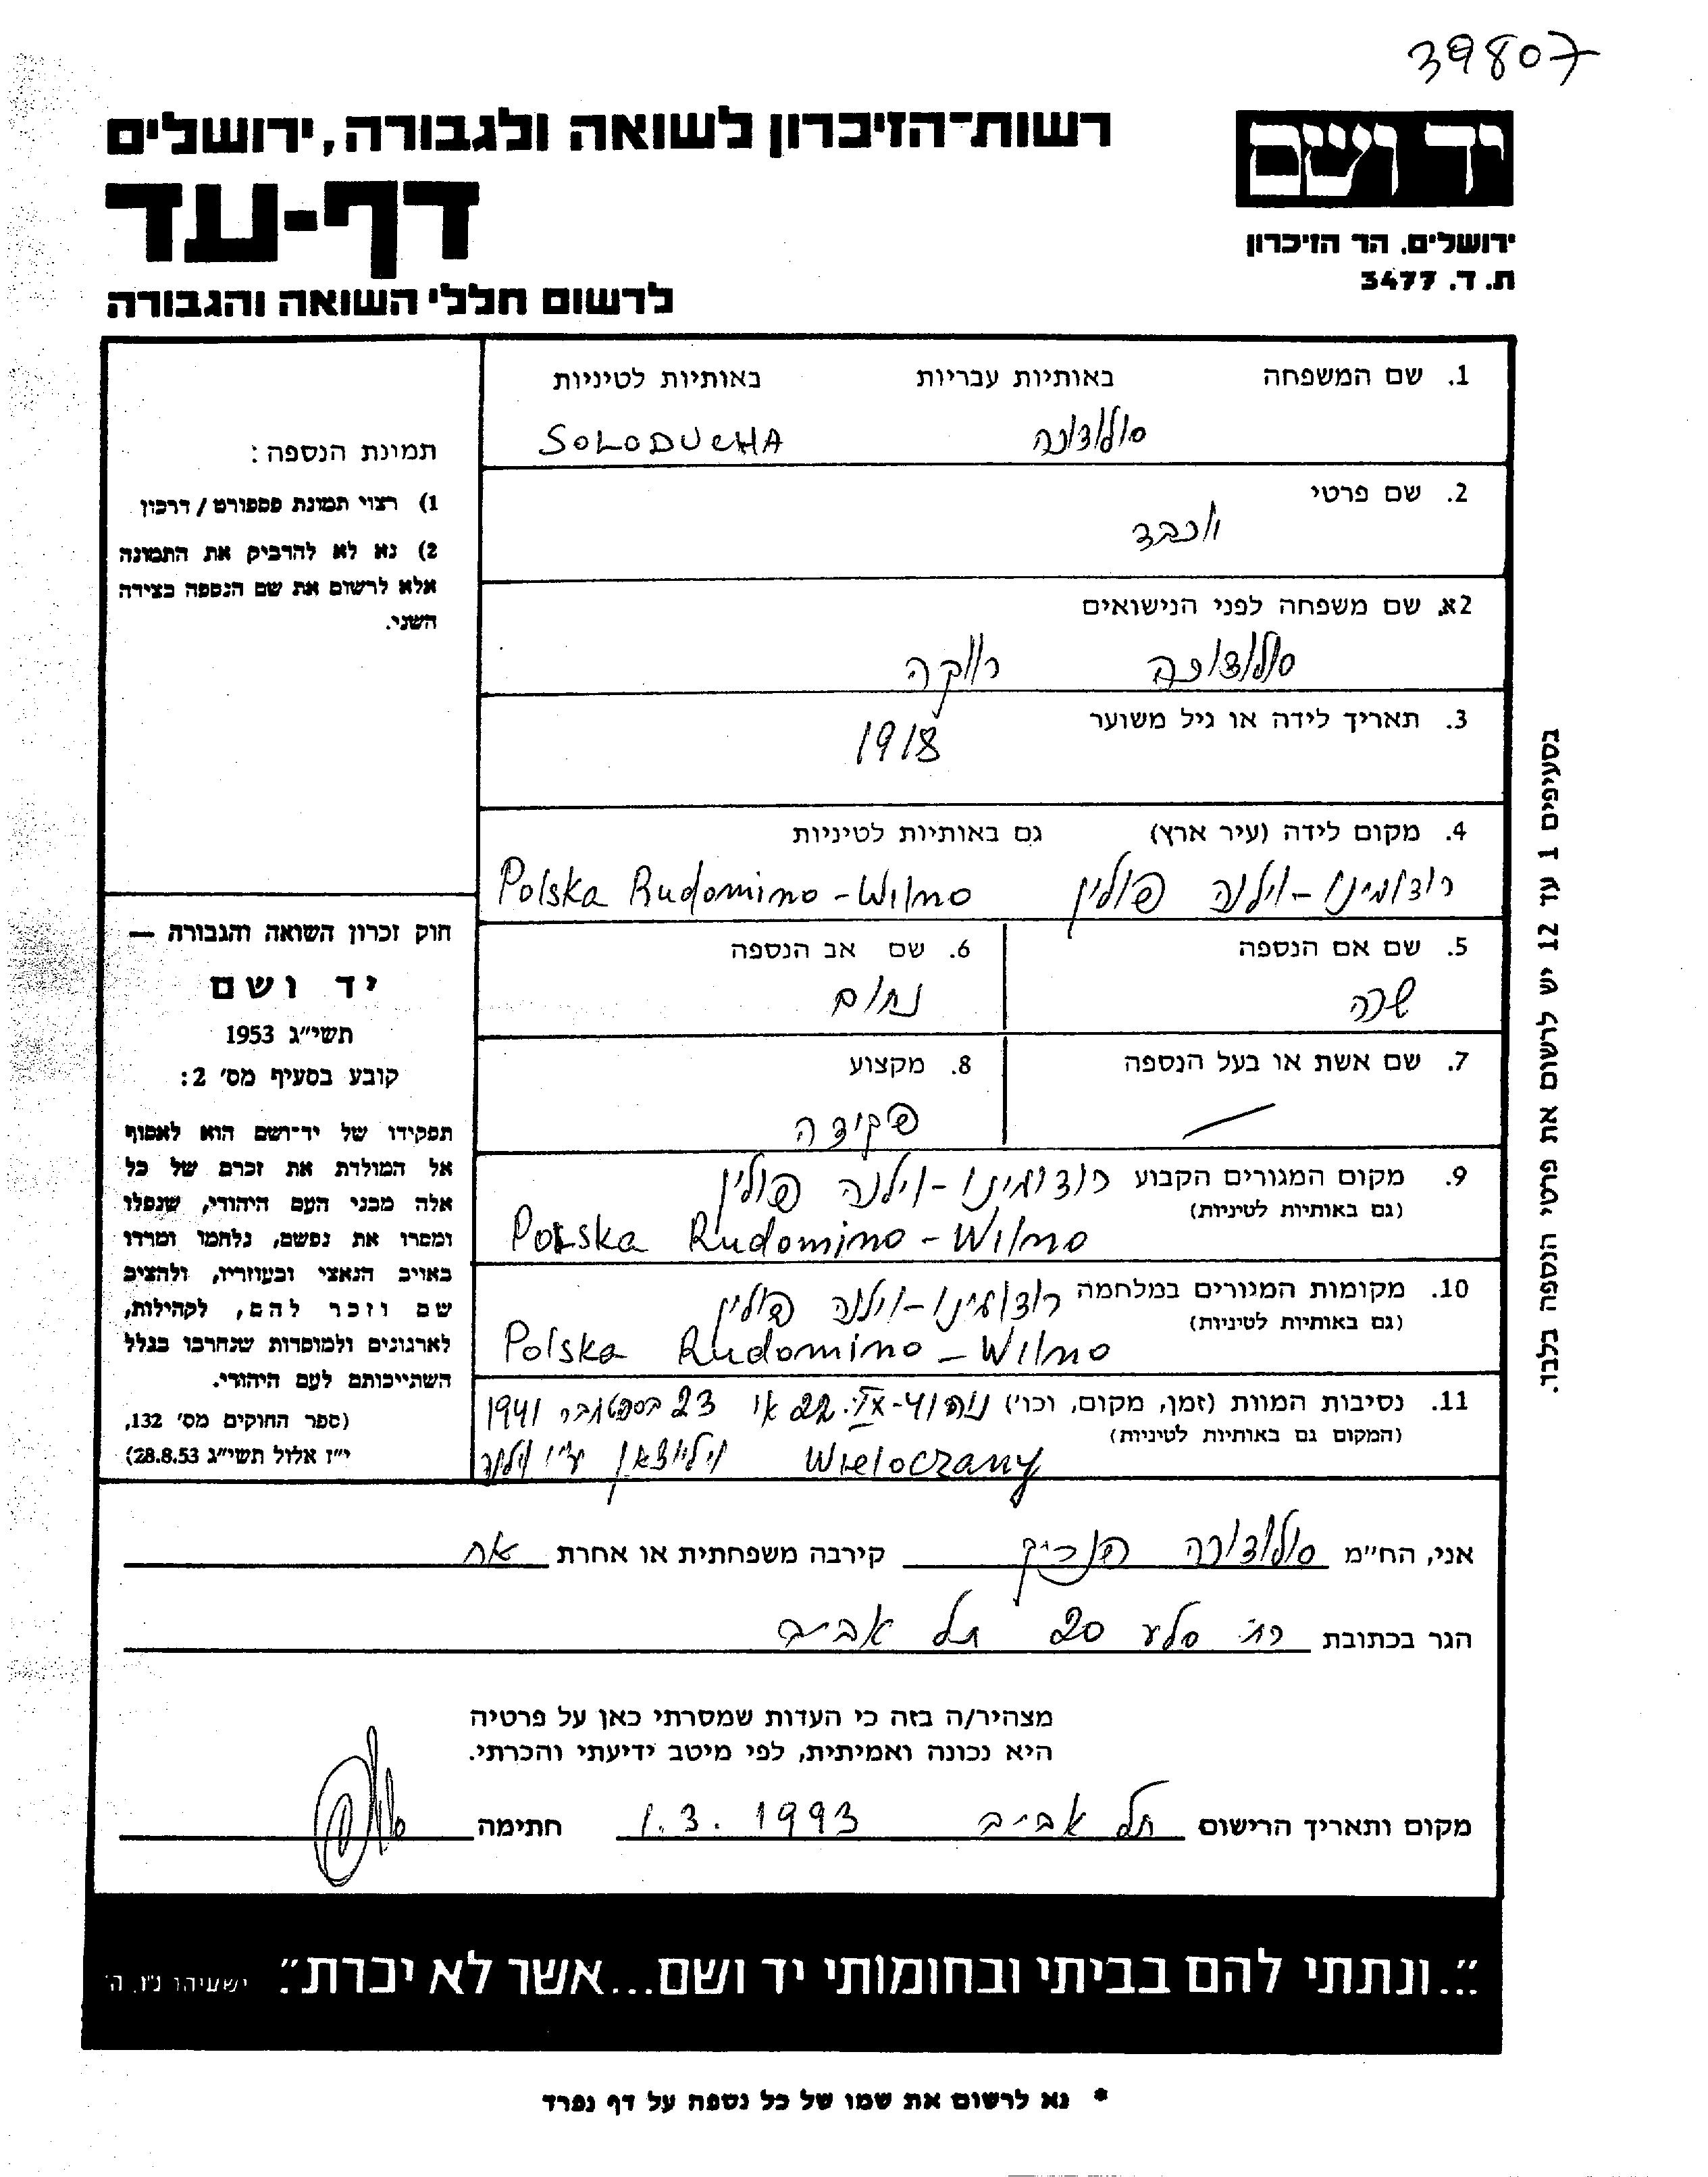 39807
יד ושם
רשות־הזיכרון לשואה ולגבורה, ירושלים
דף-עד
ירושלים, הר הזיכרון
ת. ד. 3477
לרשום חללי השואה והגבורה
1. שם המשפחה באותיות עבריות באותיות לטיניות
סולודוכה SOLODUCHA
2. שם פרטי
יוכבד
2א. שם משפחה לפני הנישואים
סולודוכה רווקה
3. תאריך לידה או גיל משוער
1918
4. מקום לידה (עיר ארץ) גם באותיות לטיניות
רודומינו - וילנה פולין Polska Rudomino - Wilno
5. שם אם הנספה 6. שם אב הנספה
שרה נחום
7. שם אשת או בעל הנספה 8. מקצוע
— פקידה
9. מקום המגורים הקבוע רודומינו - וילנה פולין
(גם באותיות לטיניות)
Polska Rudomino - Wilno
10. מקומות המגורים במלחמה רודומינו - וילנה פולין
(גם באותיות לטיניות)
Polska Rudomino - Wilno
11. נסיבות המוות (זמן, מקום, וכו') 22.IX-41 או 23 בספטמבר 1941
(המקום גם באותיות לטיניות)
Wieloczany ע"י וילנה
תמונת הנספה:
1) רצוי תמונת פספורט / דרכון
2) נא לא להדביק את התמונה
אלא לרשום את שם הנספה בצידה
השני.
חוק זכרון השואה והגבורה —
יד ושם
תשי״ג 1953
קובע בסעיף מס׳ 2:
תפקידו של יד־ושם הוא לאסוף
אל המולדת את זכרם של כל
אלה מבני העם היהודי, שנפלו
ומסרו את נפשם, נלחמו ומרדו
באויב הנאצי ובעוזריו, ולהציב
שם וזכר להם, לקהילות,
לארגונים ולמוסדות שנחרבו בגלל
השתייכותם לעם היהודי.
(ספר החוקים מס׳ 132,
י״ז אלול תשי״ג 28.8.53)
בסעיפים 1 עד 12 יש לרשום את פרטי הנספה בלבד.
אני, הח״מ סולודוכה קירבה משפחתית או אחרת אח
הגר בכתובת רח' סלע 20 תל אביב
מצהיר/ה בזה כי העדות שמסרתי כאן על פרטיה
היא נכונה ואמיתית, לפי מיטב ידיעתי והכרתי.
מקום ותאריך הרישום תל אביב 1.3.1993 חתימה
"...ונתתי להם בביתי ובחומותי יד ושם...אשר לא יכרת". ישעיהו נ"ו, ה'
* נא לרשום את שמו של כל נספה על דף נפרד